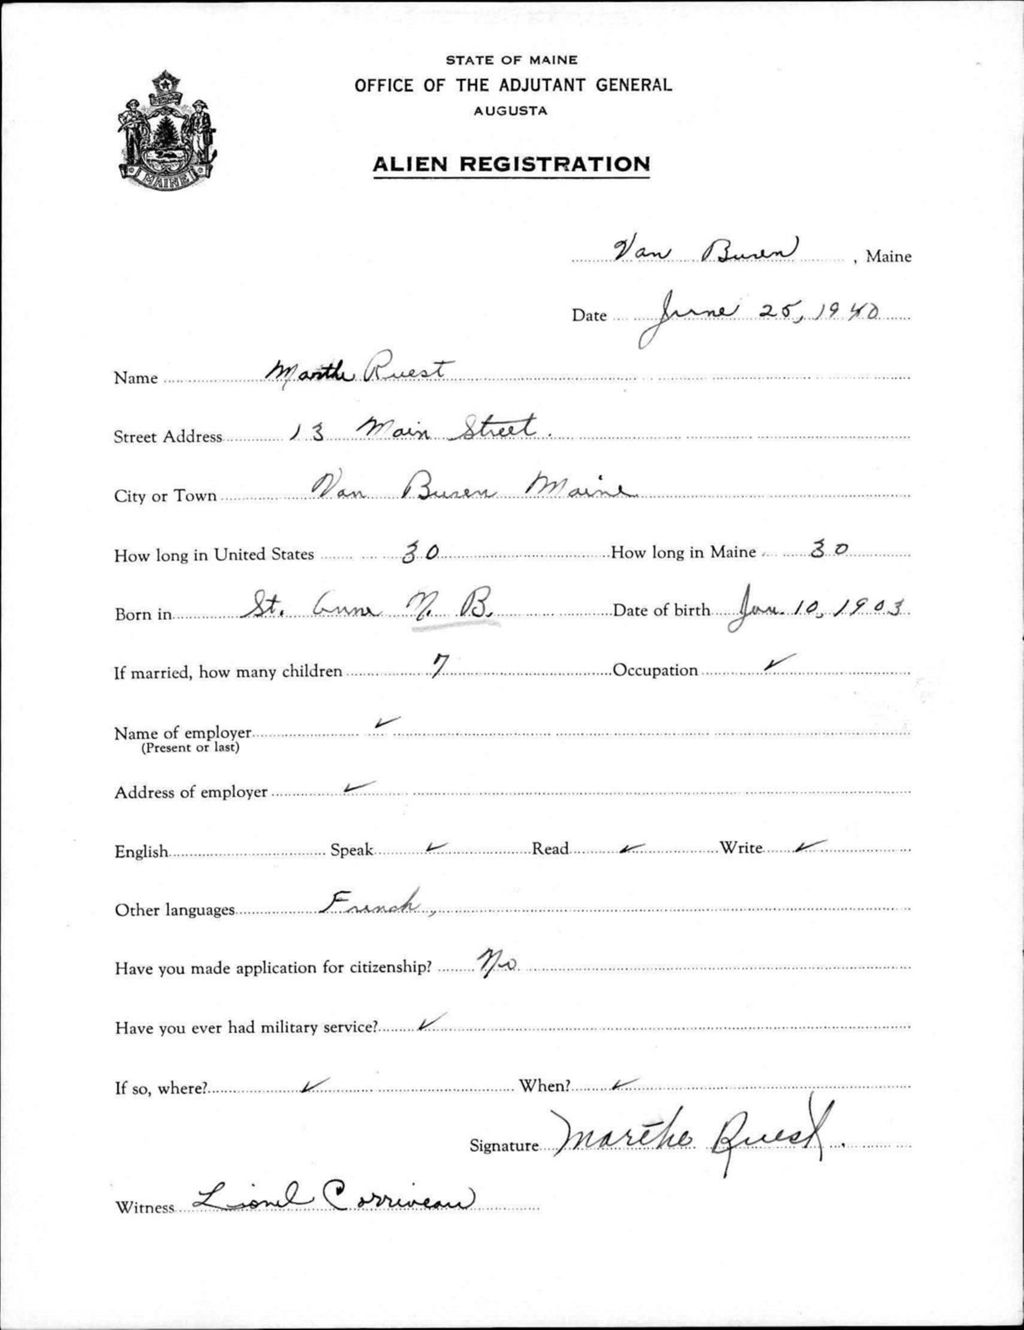 STATE OF MAINE
OFFICE OF THE ADJUTANT GENERAL
AUGUSTA
MAINE
ALIEN REGISTRATION
Van Buren, Maine
Date June 25, 1940
Name Marthe Ruest
Street Address 13 Main Street.
City or Town Van Buren Maine
How long in United States 30 How long in Maine 30
Born in St. Anne N. B. Date of birth Jan. 10, 1903
If married, how many children 7 Occupation ✓
Name of employer ✓
(Present or last)
Address of employer ✓
English Speak ✓ Read ✓ Write ✓
Other languages French,
Have you made application for citizenship? No
Have you ever had military service? ✓
If so, where? ✓ When? ✓
Signature Marthe Ruest.
Witness Lionel Corriveau